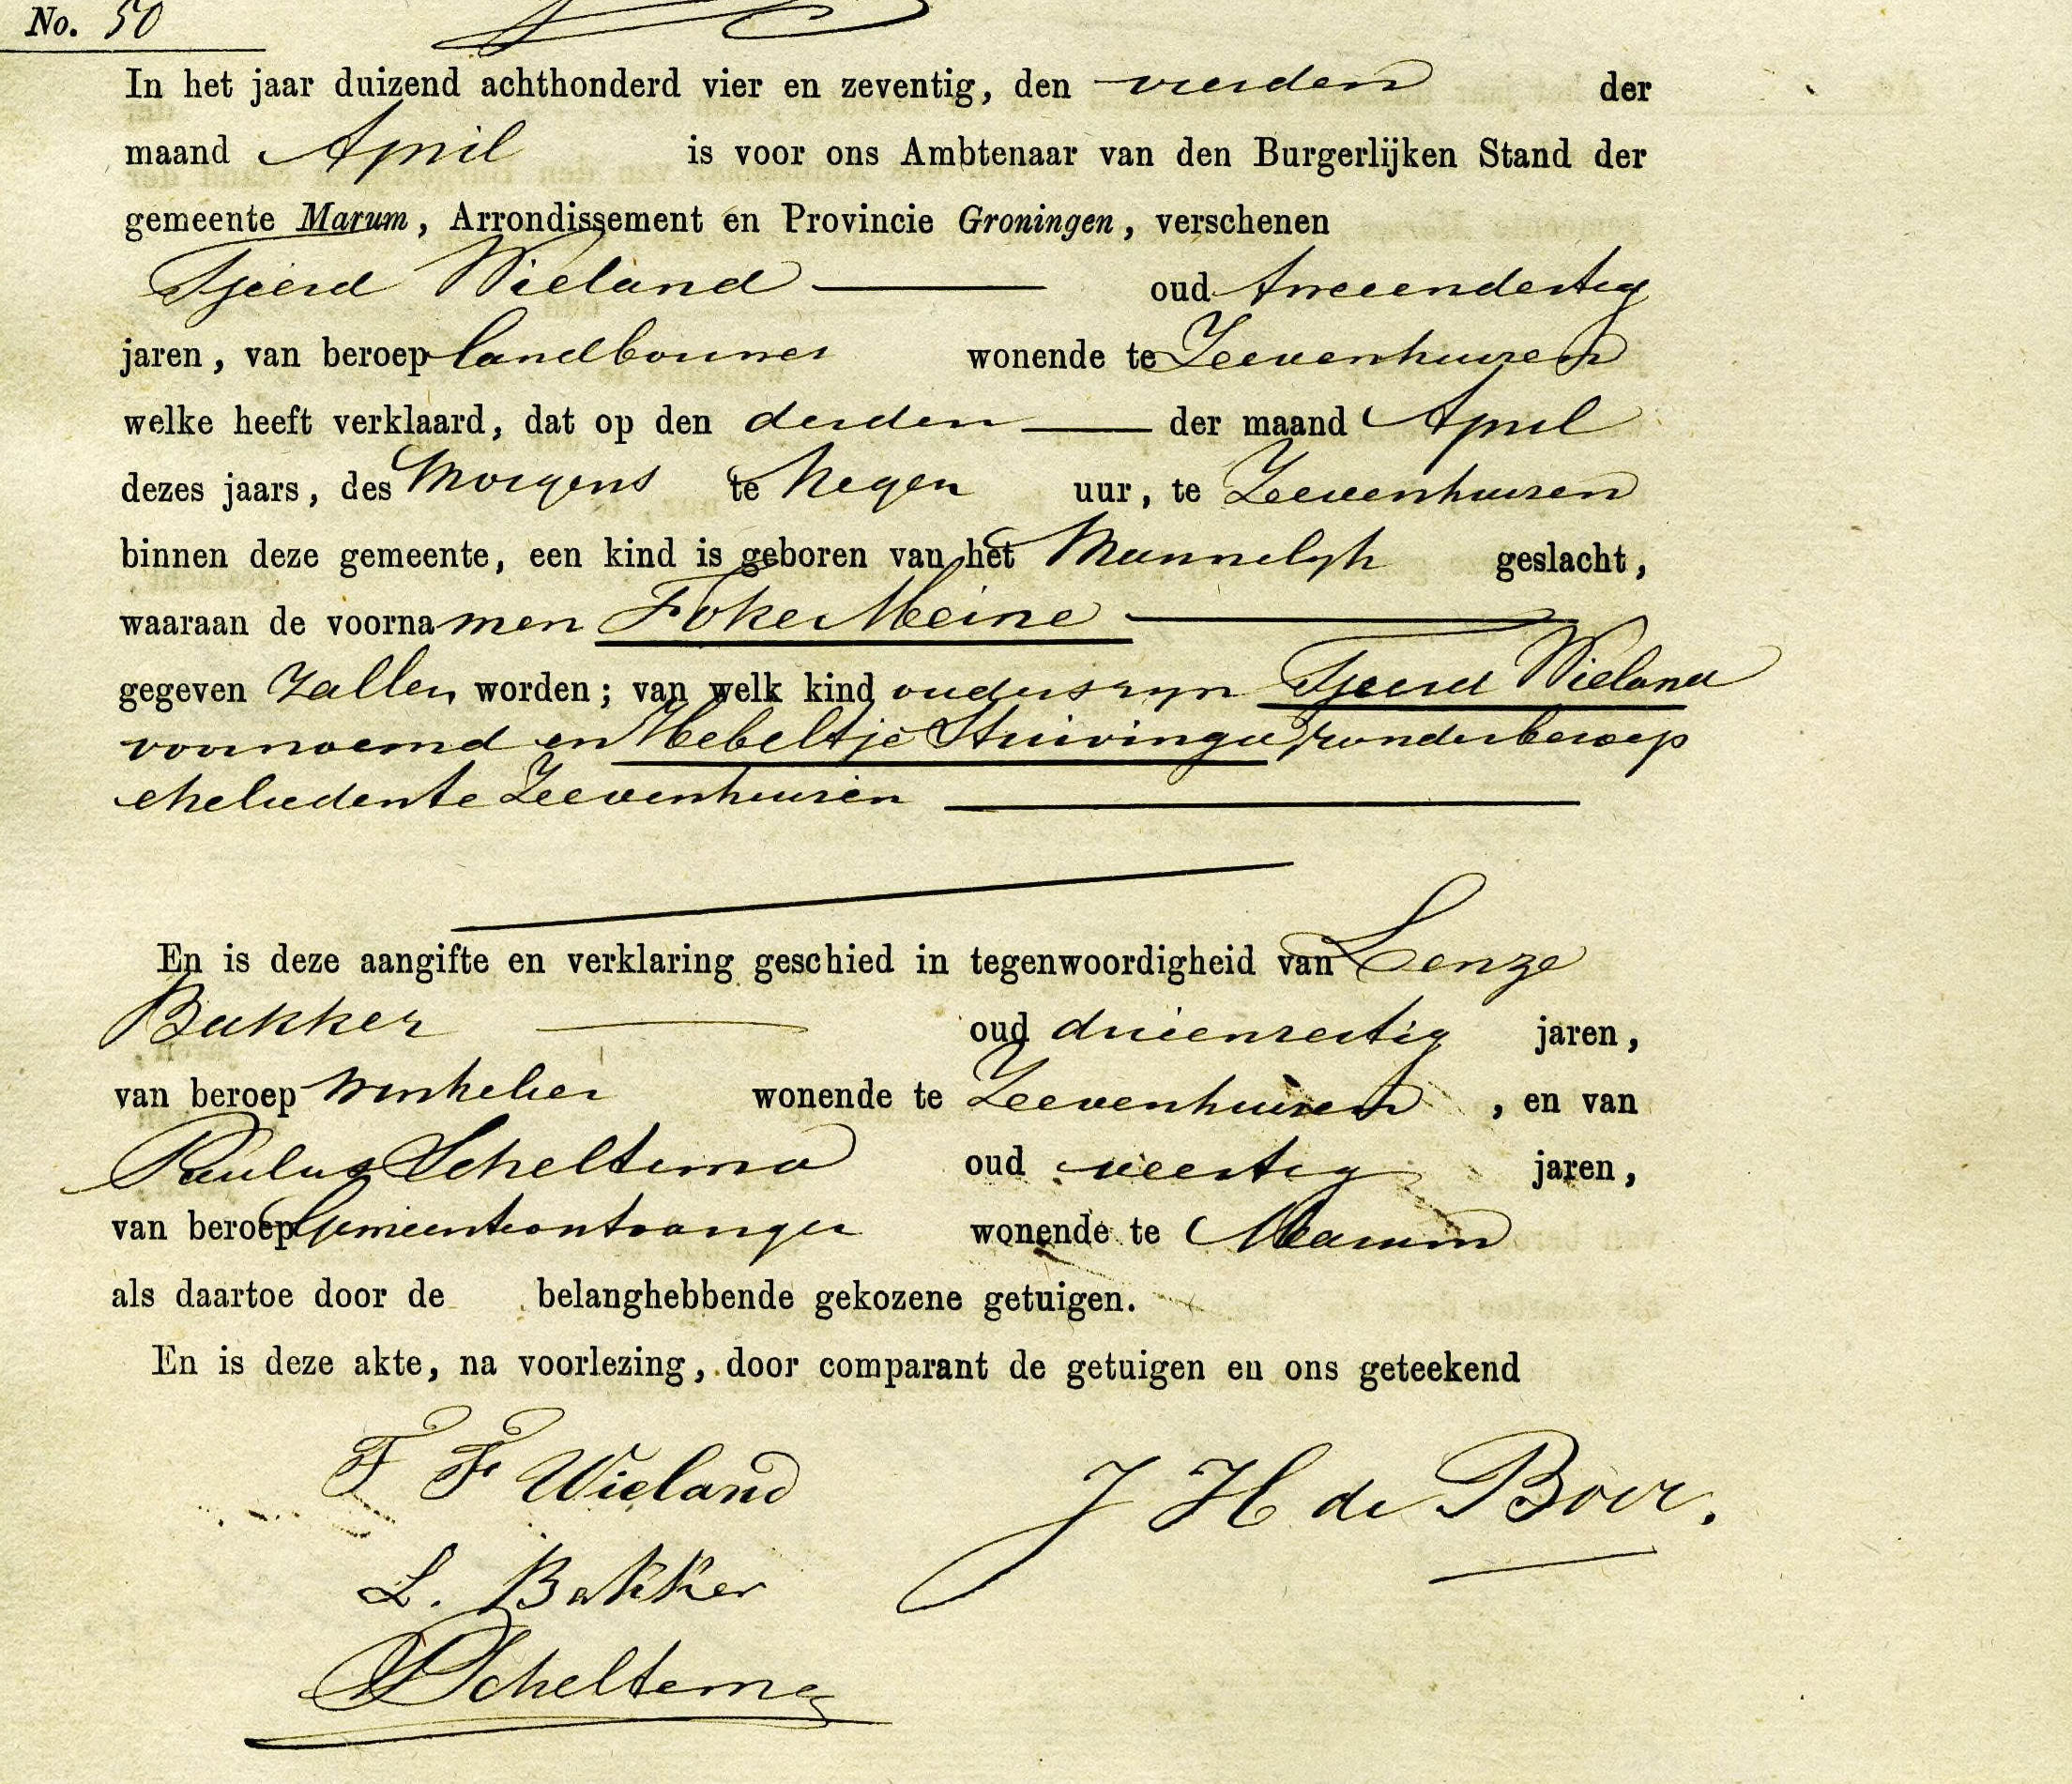 No. 50
In het jaar duizend achthonderd vier en zeventig, den vierden der
maand April is voor ons Ambtenaar van den Burgerlijken Stand der
gemeente Marum, Arrondissement en Provincie Groningen, verschenen
Tjeerd Wieland oud tweeendertig
jaren, van beroep landbouwer wonende te Zeevenhuizen
welke heeft verklaard, dat op den derden der maand April
dezes jaars, des Morgens te Negen uur, te Zeevenhuizen
binnen deze gemeente, een kind is geboren van het Mannelyk geslacht,
waaraan de voornamen Foke Meine
gegeven zullen worden; van welk kind ouders zyn Tjeerd Wieland
voornoemd en Hebeltje Stuivinga, zonder beroep
ehelieden te Zeevenhuizen
En is deze aangifte en verklaring geschied in tegenwoordigheid van Lenze
Bakker oud drieenzestig jaren,
van beroep winkelier wonende te Zeevenhuizen, en van
Paulus Scheltema oud veertig jaren,
van beroep Gemeenteontvanger wonende te Marum
als daartoe door de belanghebbende gekozene getuigen.
En is deze akte, na voorlezing, door comparant de getuigen en ons geteekend
T F Wieland
J H de Boer.
L. Bakker
P Scheltema